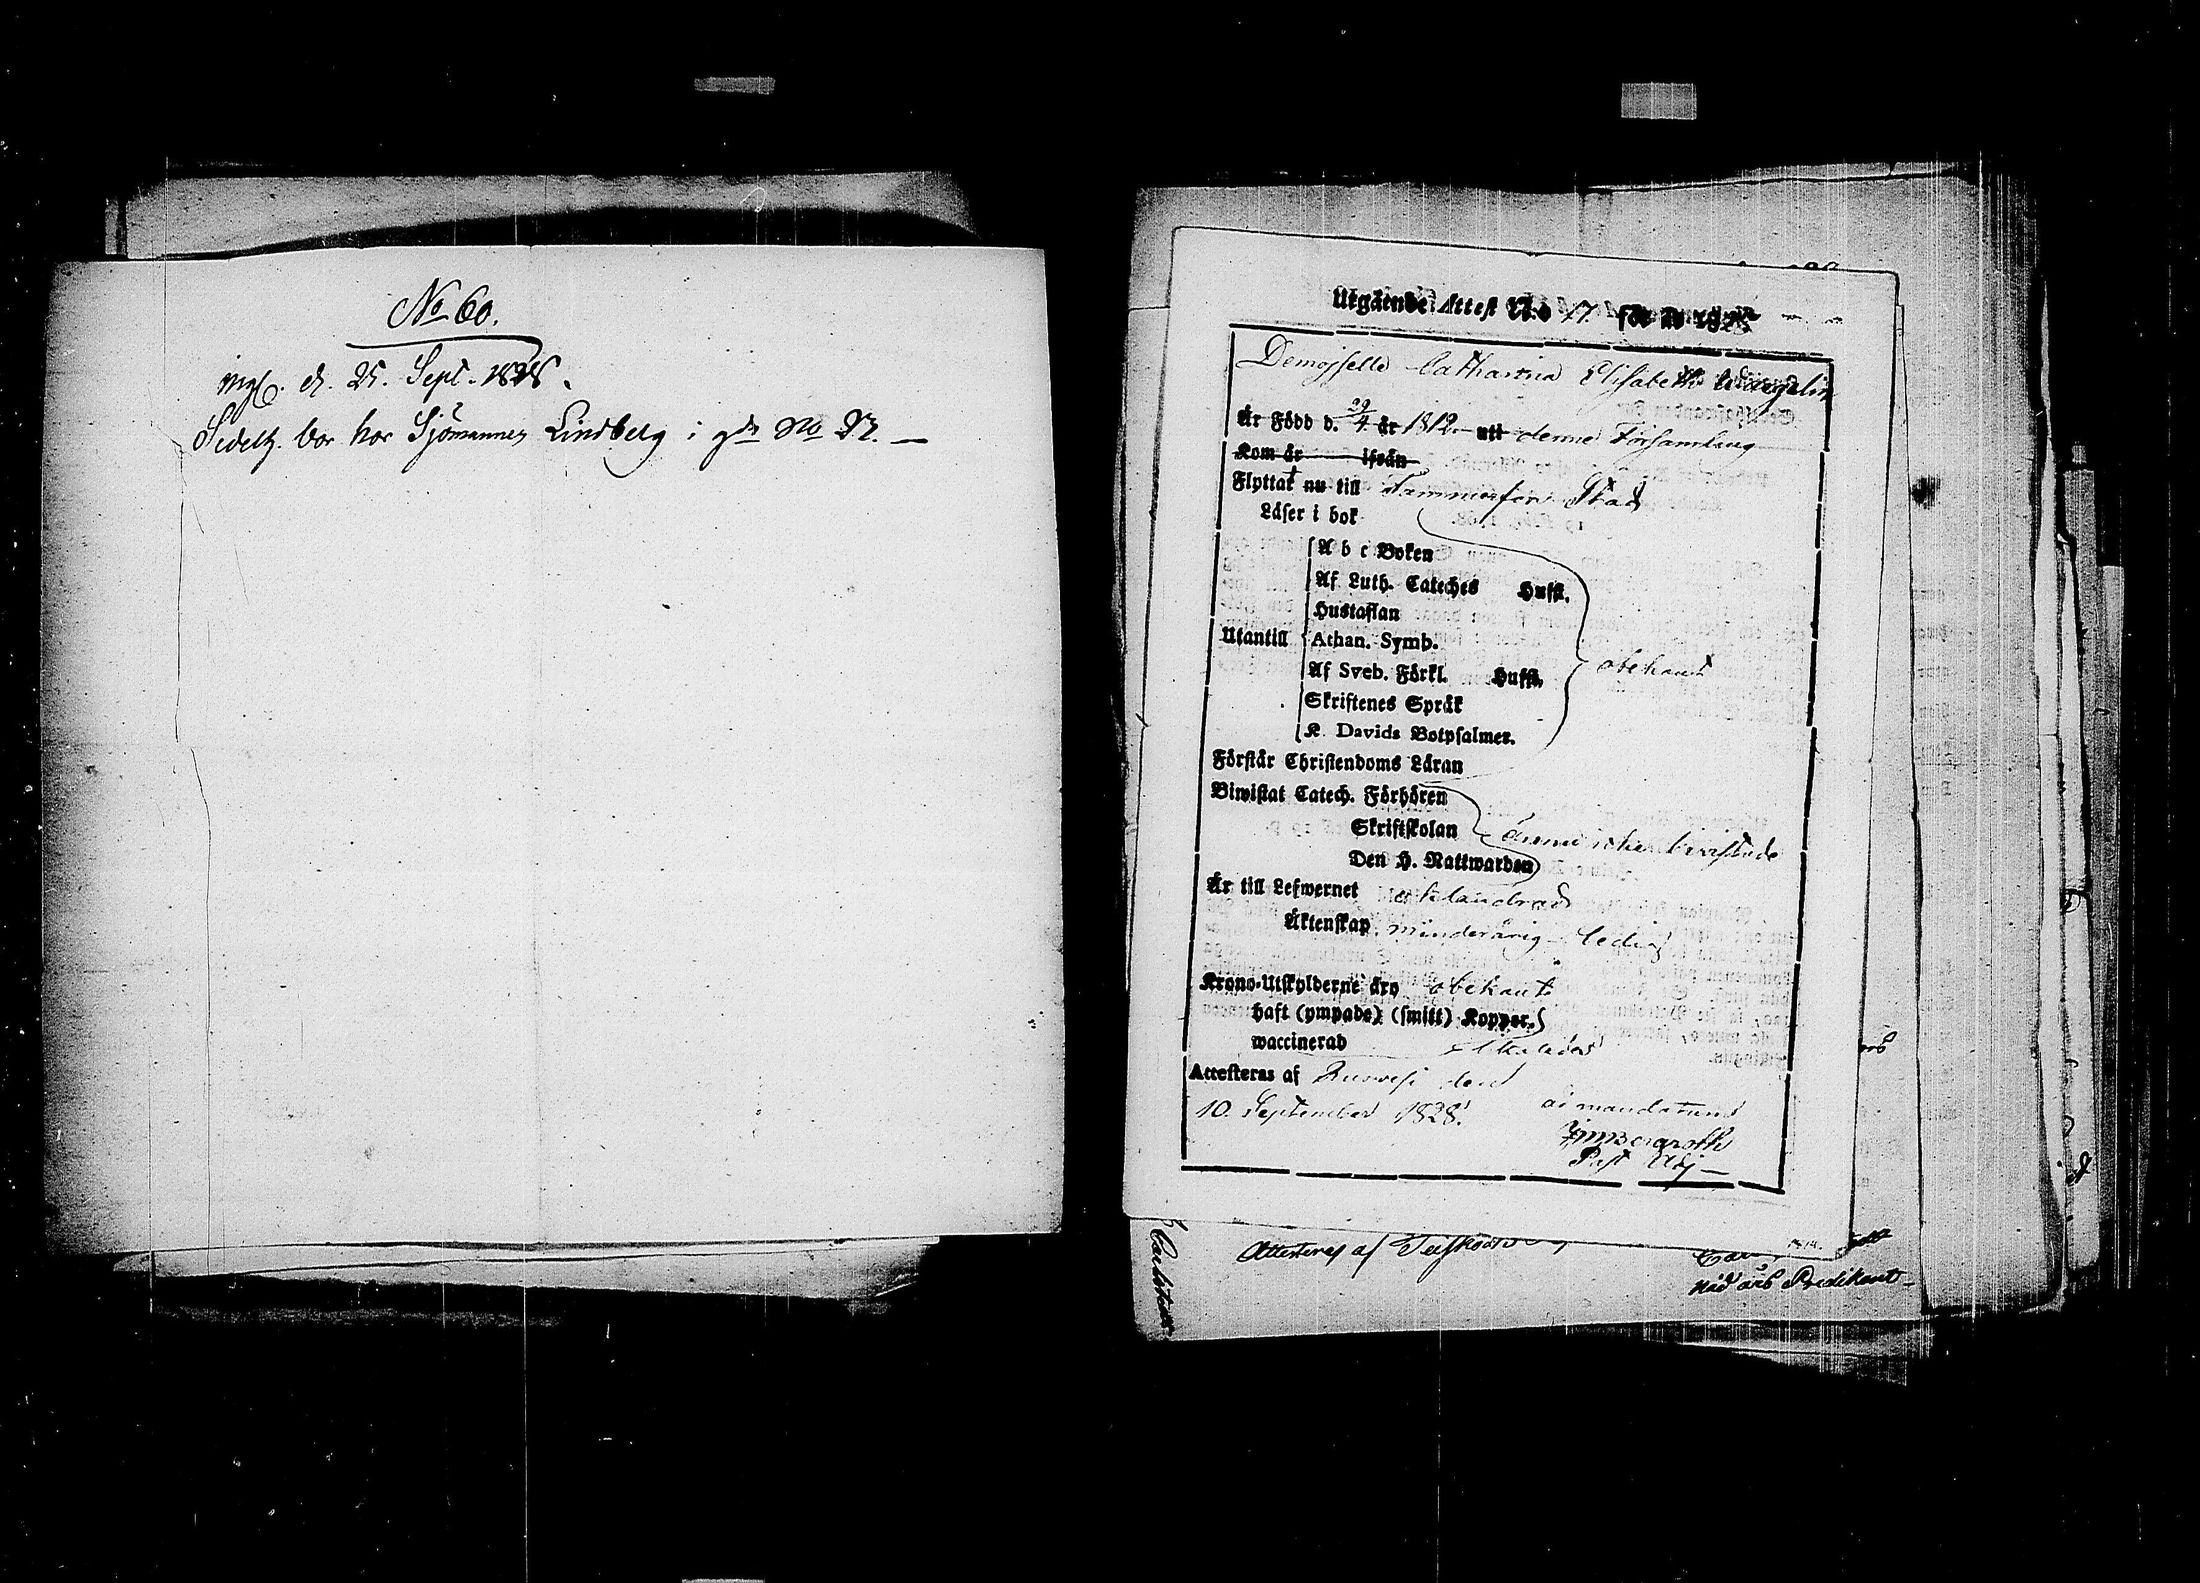 No 60.
ingf. d. 25. Sept. 1828.
Sedelh. bor hos Sjömannen Lindberg i gdn No 27.
Utgående Attest N:o 17. för år 1828
Demoiselle Catharina Elisabeth Wegelin
Är Född d. 29/4 år 1812. uti denne Församling
Kom år ifrån
Flyttat nu till Tammerfors Stad
Läser i bok
A b c Boken
Af Luth. Cateches Hufst.
Hustaflan
Utantill Athan. Symb.
Af Sveb. Förkl. Hufst. obekant
Skriftenes Språk
K. Davids Botpsalmer.
Förstår Christendoms Läran
Biwistat Catech. Förhören
Skriftskolan ännu icke bivistade
Den H. Nattwarden
Är till Lefwernet oklandrad
Äktenskap minderårig ledig
Krono-Utskylderne äro obekant
haft (ympade) (smitt) Koppor.
waccinerad
Attesteras af Ruovesi den
10. September 1828. ad mandatum
Bergroth
Past Adj
Attesteras af
nåd års Predikant